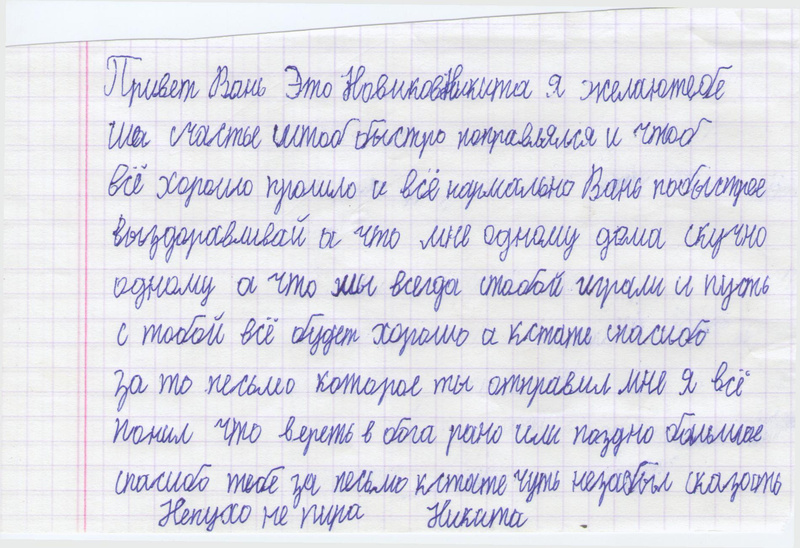 Привет Вань Это Новиков Никита я желаю тебе
ща счастье штоб быстро поправлялся и чтоб
всё хорошо прошло и всё нармально Вань побыстрее
выздоравливай а что мне одному дома скучно
одному а что мы всегда стобой играли и пусть
с тобой всё будет хорошо а кстате спасибо
за то песьмо которое ты отправил мне я всё
понил что вереть в бога рано или поздно большое
спасибо тебе за песьмо кстате чуть незабыл сказать
Непухо не пира Никита